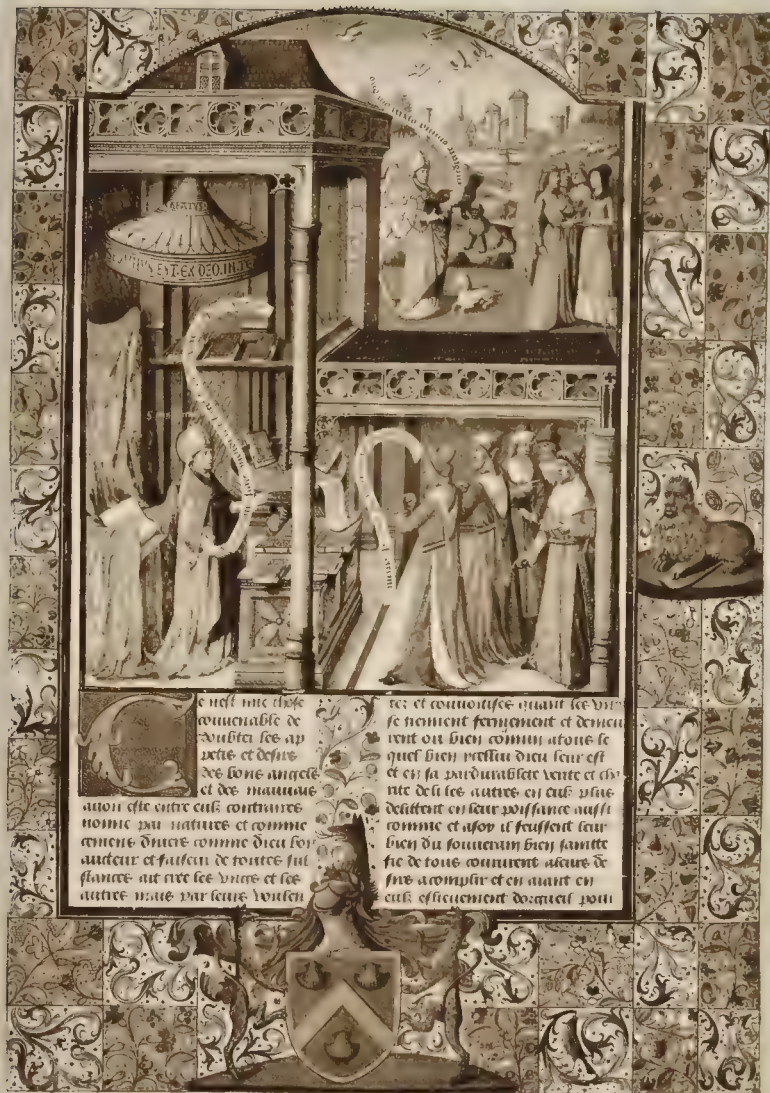 BEATVS
EST · EX DEO · IN · TE
Ce nest mie chose
conuenable de
doubter les ap
petis et desirs
des bons angels
et des mauuais
auon este entre eulx contraires
nonmie par natures et comme
cemens diuers comme dieu bon
aucteur et faiseur de toutes sub
stances ait cree les vnes et les
autres mais par leurs voulen
tez et conuoitises quant les vns
se tiennent fermement et demeu
rent ou bien commun atous le
quel bien dieu leur est
et en sa pardurablete verite et cha
rite de li les autres en eulx plus
delittent en leur poissance aussi
comme et asoy il feussent leur
bien du souuerain bien
de tous coururent aleurs de
sirs acomplir et en aiant en
eulx esleuement dorgueil pour